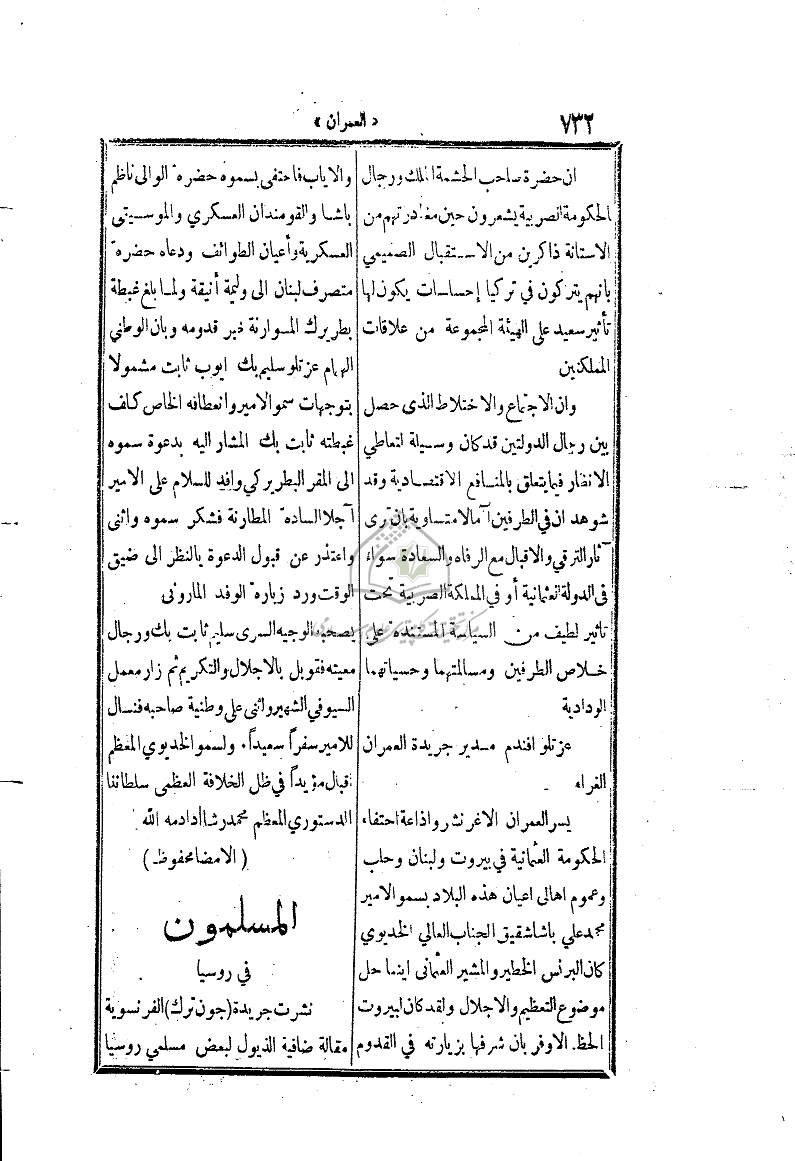 ٧٣٢
« العمران »
ان حضرة صاحب الحشمة الملك ورجال
الحكومة الصربية يشعرون حين مغادرتهم من
الاستانة ذاكرين من الاستقبال الصميمي
بانهم يتركون في تركيا إحساسات يكون لها
تأثير سعيد على الهيئة المجموعة من علاقات
المملكتين
وان الاجتماع والاختلاط الذى حصل
بين رجال الدولتين قد كان وسيلة لتعاطي
الانظار فيما يتعلق بالمنافع الاقتصادية وقد
شوهد ان في الطرفين آمالا متساوية بان ترى
آثار الترقي والاقبال مع الرفاه والسعادة سواء
فى الدولة العثمانية أو في المملكة الصربية تحت
تاثير لطيف من السياسة المستندة على
خلاص الطرفين ومسالمتهما وحسياتهما
الودادية
عزتلو افندم مدير جريدة العمران
الغراء
يسر العمران الاغر نشر واذاعة احتفاء
الحكومة العثمانية في بيروت ولبنان وحلب
وعموم اهالى اعيان هذه البلاد بسمو الامير
محمد علي باشا شقيق الجناب العالي الخديوي
كان البرنس الخطير والمشير العثمانى اينما حل
موضوع التعظيم والاجلال ولقد كان لبيروت
الحظ الاوفر بان شرفها بزيارته في القدوم
والاياب فاحتفى بسموه حضرة الوالى ناظم
باشا والقومندان العسكري والموسيتى
العسكرية وأعيان الطوائف ودعاه حضرة
متصرف لبنان الى وليمة أنيقة ولما بلغ غبطة
بطريرك الموارنة خبر قدومه وبان الوطني
الهمام عزتلو سليم بك ايوب ثابت مشمولا
بتوجهات سمو الامير وانعطافه الخاص كلف
غبطته ثابت بك المشار اليه بدعوة سموه
الى المقر البطريركي وافد للسلام على الامير
آجلا الساده المطارنة فشكر سموه واثنى
واعتذر عن قبول الدعوة بالنظر الى ضيق
الوقت ورد زيارة الوفد المارونى
يصحبه الوجيه السرى سليم ثابت بك ورجال
معيته فقوبل بالاجلال والتكريم ثم زار معمل
السيوفي الشهير واثنى على وطنية صاحبه فنسال
للامير سفراً سعيداً. ولسمو الخديوي المعظم
اقبال مؤيداً في ظل الخلافة العظمى سلطاننا
الدستوري المعظم محمد رشاد ادامه الله
( الامضا محفوظ )
المسلمون
في روسيا
نشرت جريدة (جون ترك) الفرنسوية
مقالة ضافية الذيول لبعض مسلمي روسيا